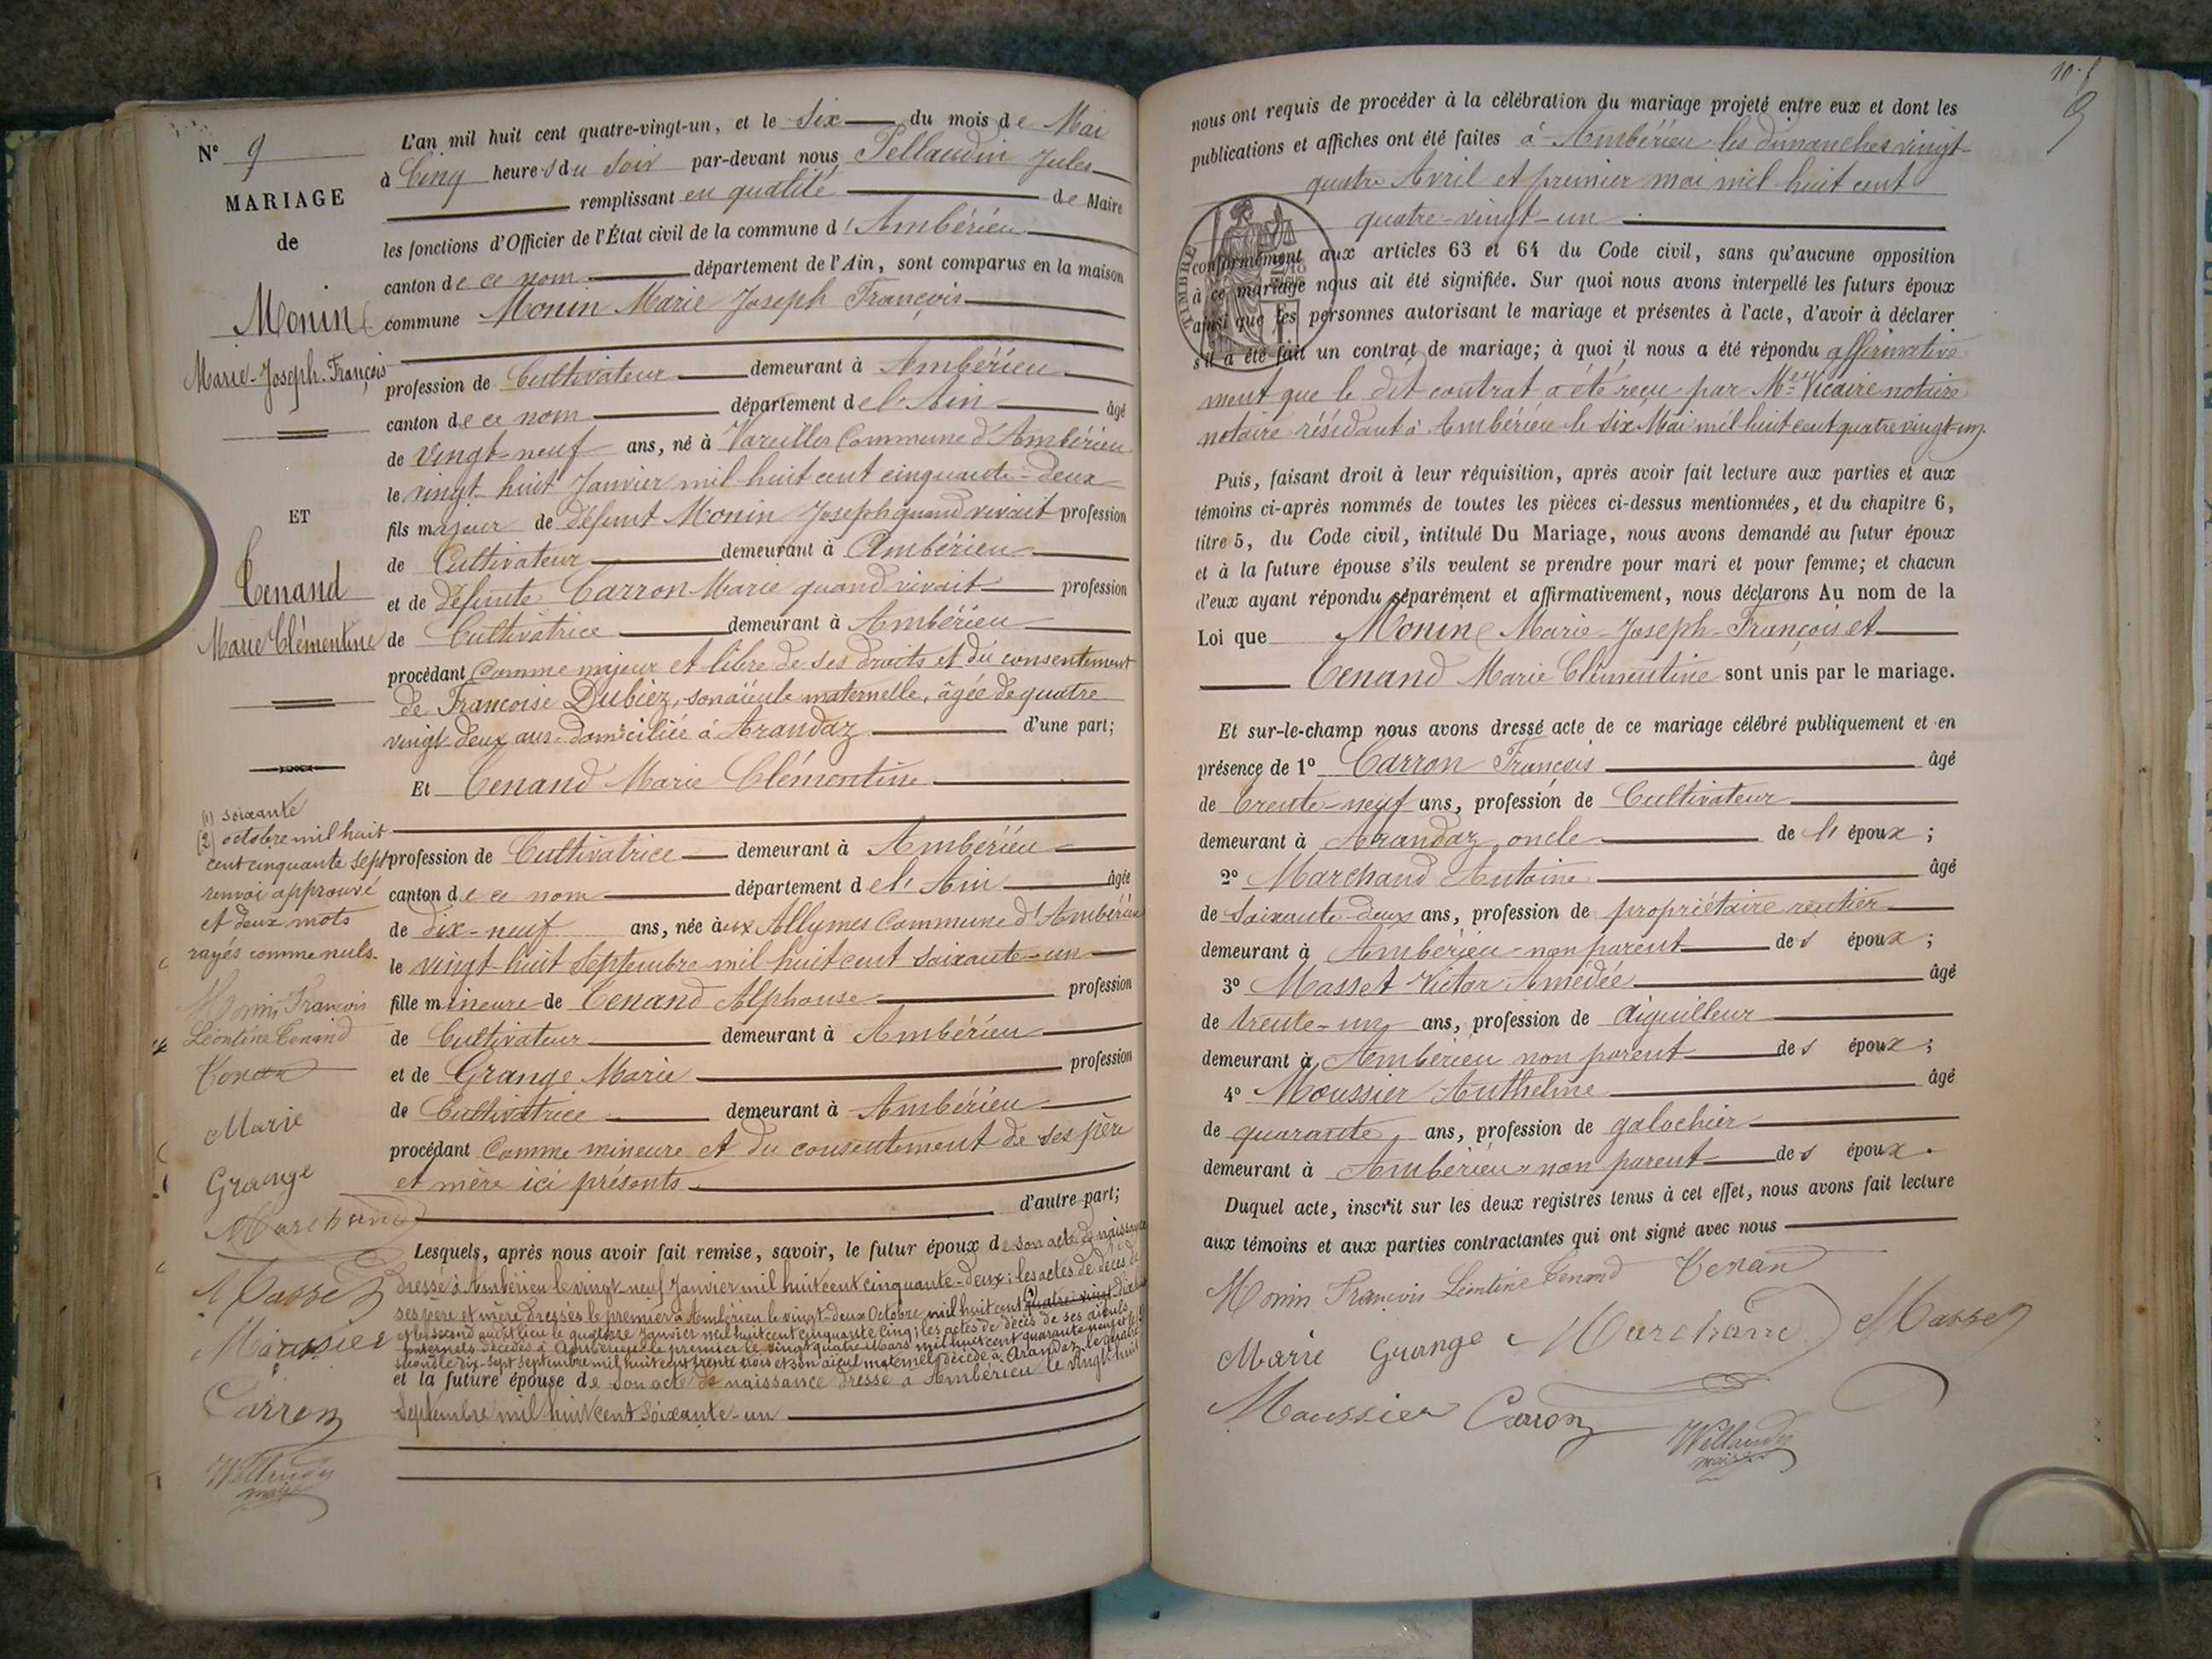 N° 9
MARIAGE
de
Monin
Marie-Joseph-François
ET
Tenand
Marie Clémentine
(1) soixante
(2) octobre mil huit
cent cinquante sept
renvoi approuvé
et deux mots
rayés comme nuls.
Monin François
Léontine Tenand
Tenan
Marie
Grange
Marchand
Masset
Moussier
Carron
maire
L'an mil huit cent quatre-vingt-un, et le Six du mois de Mai
à Cinq heures du Soir par-devant nous Pellaudin Jules
remplissant en qualité de Maire
les fonctions d'Officier de l'État civil de la commune d'Ambérieu
canton de ce nom département de l'Ain, sont comparus en la maison
commune Monin Marie Joseph François
profession de Cultivateur demeurant à Ambérieu
canton de ce nom département de l'Ain âgé
de vingt-neuf ans, né à Vareilles Commune d'Ambérieu
le vingt-huit Janvier mil huit cent cinquante-deux
fils majeur de défunt Monin Joseph quand vivait profession
de Cultivateur demeurant à Ambérieu
et de défunte Carron Marie quand vivait profession
de Cultivatrice demeurant à Ambérieu
procédant Comme majeur et libre de ses droits et du consentement
de Françoise Dubiez, son aïeule maternelle, âgée de quatre
vingt deux ans domiciliée à Arandaz d'une part;
Et Tenand Marie Clémentine
profession de Cultivatrice demeurant à Ambérieu
canton de ce nom département de l'Ain âgée
de dix-neuf ans, née aux Allymes Commune d'Ambérieu
le vingt-huit Septembre mil huit cent soixante-un
fille mineure de Tenand Alphonse profession
de Cultivateur demeurant à Ambérieu
et de Grange Marie profession
de Cultivatrice demeurant à Ambérieu
procédant Comme mineure et du consentement de ses père
et mère ici présents
d'autre part;
Lesquels, après nous avoir fait remise, savoir, le futur époux de son acte de naissance
dressé à Ambérieu le vingt-neuf Janvier mil huit cent cinquante-deux; les actes de décès de
ses père et mère dressés le premier à Ambérieu le vingt-deux Octobre mil huit cent (1) quatre vingt dix
et le second audit lieu le quatorze Janvier mil huit cent cinquante cinq; les actes de décès de ses aïeuls
paternels décédés à Ambérieu le premier le vingt quatre Mars mil huit cent quarante neuf et le
second le dix-sept Septembre mil huit cent trente trois et son aïeul maternel décédé à Arandaz le quinze
et la future épouse de son acte de naissance dressé à Ambérieu le vingt-huit
Septembre mil huit cent soixante-un
10.
9
nous ont requis de procéder à la célébration du mariage projeté entre eux et dont les
publications et affiches ont été faites à Ambérieu les dimanches vingt-
quatre Avril et premier mai mil huit cent
quatre-vingt-un
TIMBRE
conformément aux articles 63 et 64 du Code civil, sans qu'aucune opposition
à ce mariage nous ait été signifiée. Sur quoi nous avons interpellé les futurs époux
ainsi que les personnes autorisant le mariage et présentes à l'acte, d'avoir à déclarer
s'il a été fait un contrat de mariage; à quoi il nous a été répondu affirmative
ment que le dit contrat a été reçu par Me Vicaire notaire
notaire résidant à Ambérieu le six Mai mil huit cent quatre vingt-un.
Puis, faisant droit à leur réquisition, après avoir fait lecture aux parties et aux
témoins ci-après nommés de toutes les pièces ci-dessus mentionnées, et du chapitre 6,
titre 5, du Code civil, intitulé Du Mariage, nous avons demandé au futur époux
et à la future épouse s'ils veulent se prendre pour mari et pour femme; et chacun
d'eux ayant répondu séparément et affirmativement, nous déclarons Au nom de la
Loi que Monin Marie-Joseph-François et
Tenand Marie Clémentine sont unis par le mariage.
Et sur-le-champ nous avons dressé acte de ce mariage célébré publiquement et en
présence de 1° Carron François âgé
de trente-neuf ans, profession de Cultivateur
demeurant à Arandaz, oncle de l'époux;
2° Marchand Antoine âgé
de Soixante-deux ans, profession de propriétaire rentier
demeurant à Ambérieu non parent des époux;
3° Masset Victor Amédée âgé
de trente-un ans, profession de aiguilleur
demeurant à Ambérieu non parent des époux;
4° Moussier Anthelme âgé
de quarante ans, profession de galochier
demeurant à Ambérieu non parent des époux.
Duquel acte, inscrit sur les deux registres tenus à cet effet, nous avons fait lecture
aux témoins et aux parties contractantes qui ont signé avec nous
Monin François Léontine Tenand Tenan
Marie Grange Marchand Masset
Moussier Carron
maire